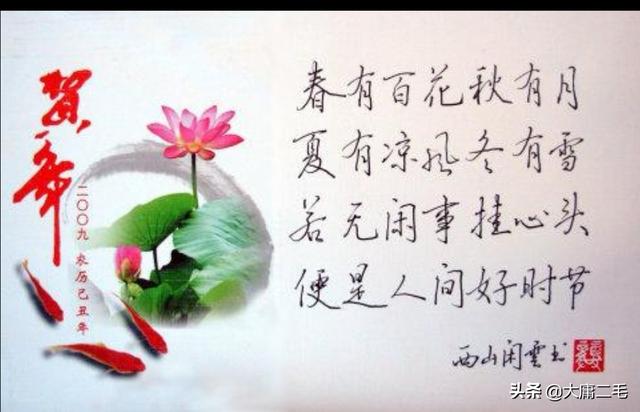 贺年
二〇〇九 农历己丑年
春有百花秋有月
夏有凉风冬有雪
若无闲事挂心头
便是人间好时节
西山闲雲书
头条 @大庸二毛